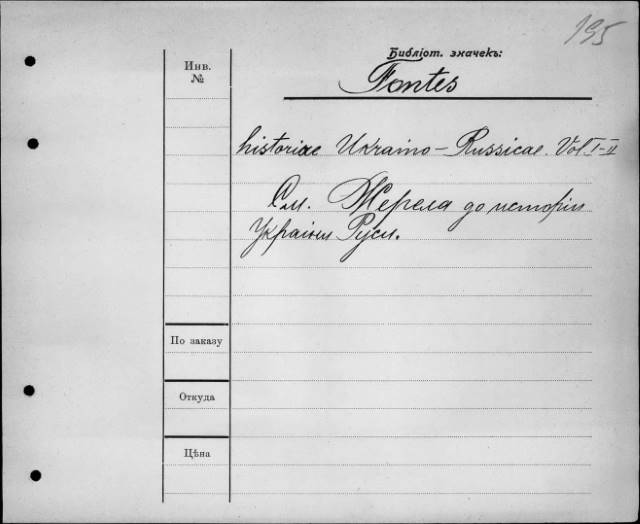 195
Библіот. значекъ:
Инв.
№
Fontes
historiae Ukraino-Russicae. Vol I-II
См. Жерела до истории
Украіни Руси.
По заказу
Откуда
Цѣна